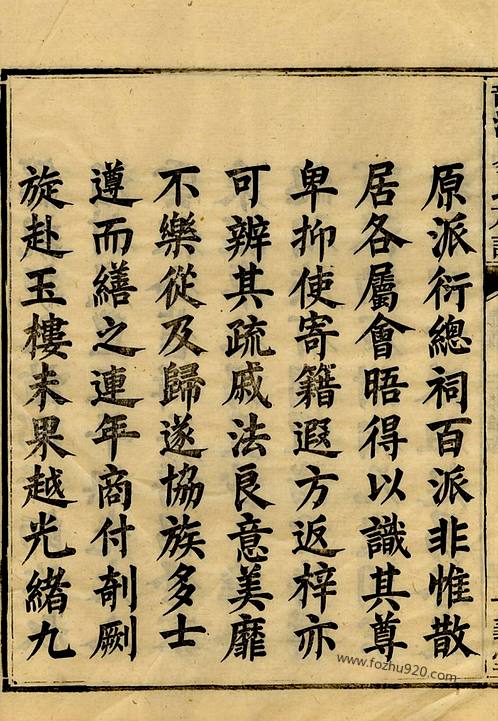 原派衍總祠百派非惟散
居各屬會晤得以識其尊
卑抑使寄籍遐方返梓亦
可辨其疏戚法良意美靡
不樂從及歸遂協族多士
遵而繕之連年商付剞劂
旋赴玉樓未果越光緒九
www.fozhu920.com